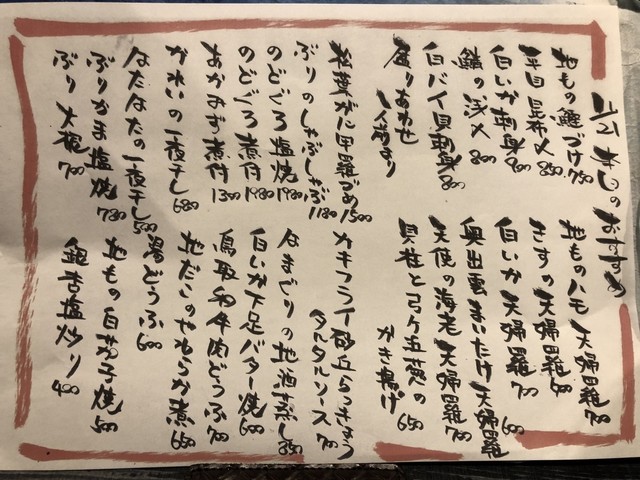 山陰のおすすめ
地もの鯵づけ 750
平目昆布〆 850
白いか刺身 900
鯖の浅〆 800
白バイ貝刺身 800
盛りあわせ
一人前より
1500
ぶりのしゃぶしゃぶ 1180
のどぐろ塩焼 1980
のどぐろ煮付 1980
おかみお煮付 1300
かれいの一夜干し 680
はたはたの一夜干し 500
ぶりかま塩焼 780
ぶり大根 700
地ものハモ天婦羅 700
きすの天婦羅
白いか天婦羅 700
奥出雲まいたけ天婦羅 600
天使の海老天婦羅 700
貝柱と弓ヶ浜葱の
かき揚げ 650
カキフライ砂丘らっきょう
タルタルソース 700
はまぐりの地酒蒸し 850
白いか下足バター焼 600
鳥取和牛肉どうふ 700
地だこのやわらか煮 650
湯どうふ 600
地もの白茄子焼 500
銀杏塩炒り 400